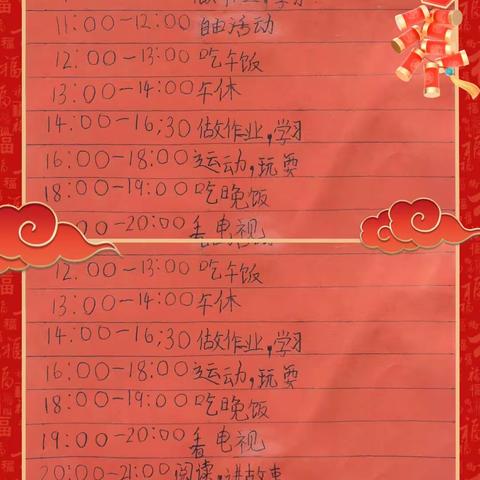 做作业,学习
11:00-12:00自由活动
12:00-13:00吃午饭
13:00-14:00午休
14:00-16:30做作业,学习
16:00-18:00运动,玩耍
18:00-19:00吃晚饭
00-20:00看电视
12:00-13:00吃午饭
13:00-14:00午休
14:00-16:30做作业,学习
16:00-18:00运动,玩耍
18:00-19:00吃晚饭
19:00-20:00看电视
20:00-21:00阅读,讲故事